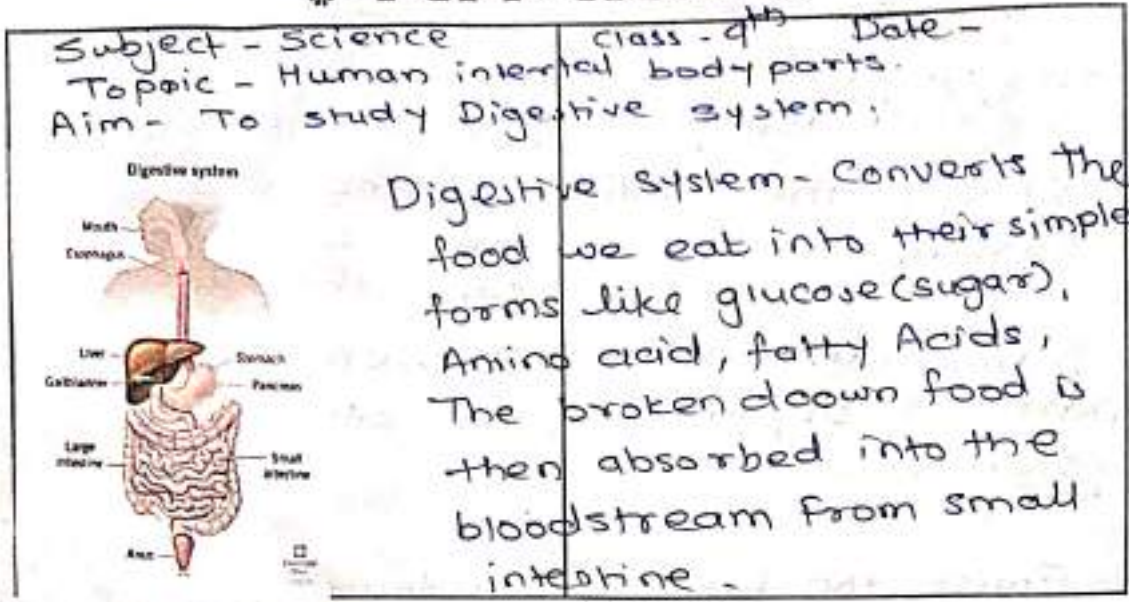 Subject - Science Class - 9th Date -
Topoic - Human internal body parts.
Aim - To study Digestive system.
Digestive system
Mouth
Esophagus
Liver
Stomach
Gallbladder
Pancreas
Large intestine
Small intestine
Anus
Digestive System - Converts the
food we eat into their simple
forms like glucose (sugar),
Amino acid, fatty Acids,
The broken doown food is
then absorbed into the
bloodstream from small
intestine.